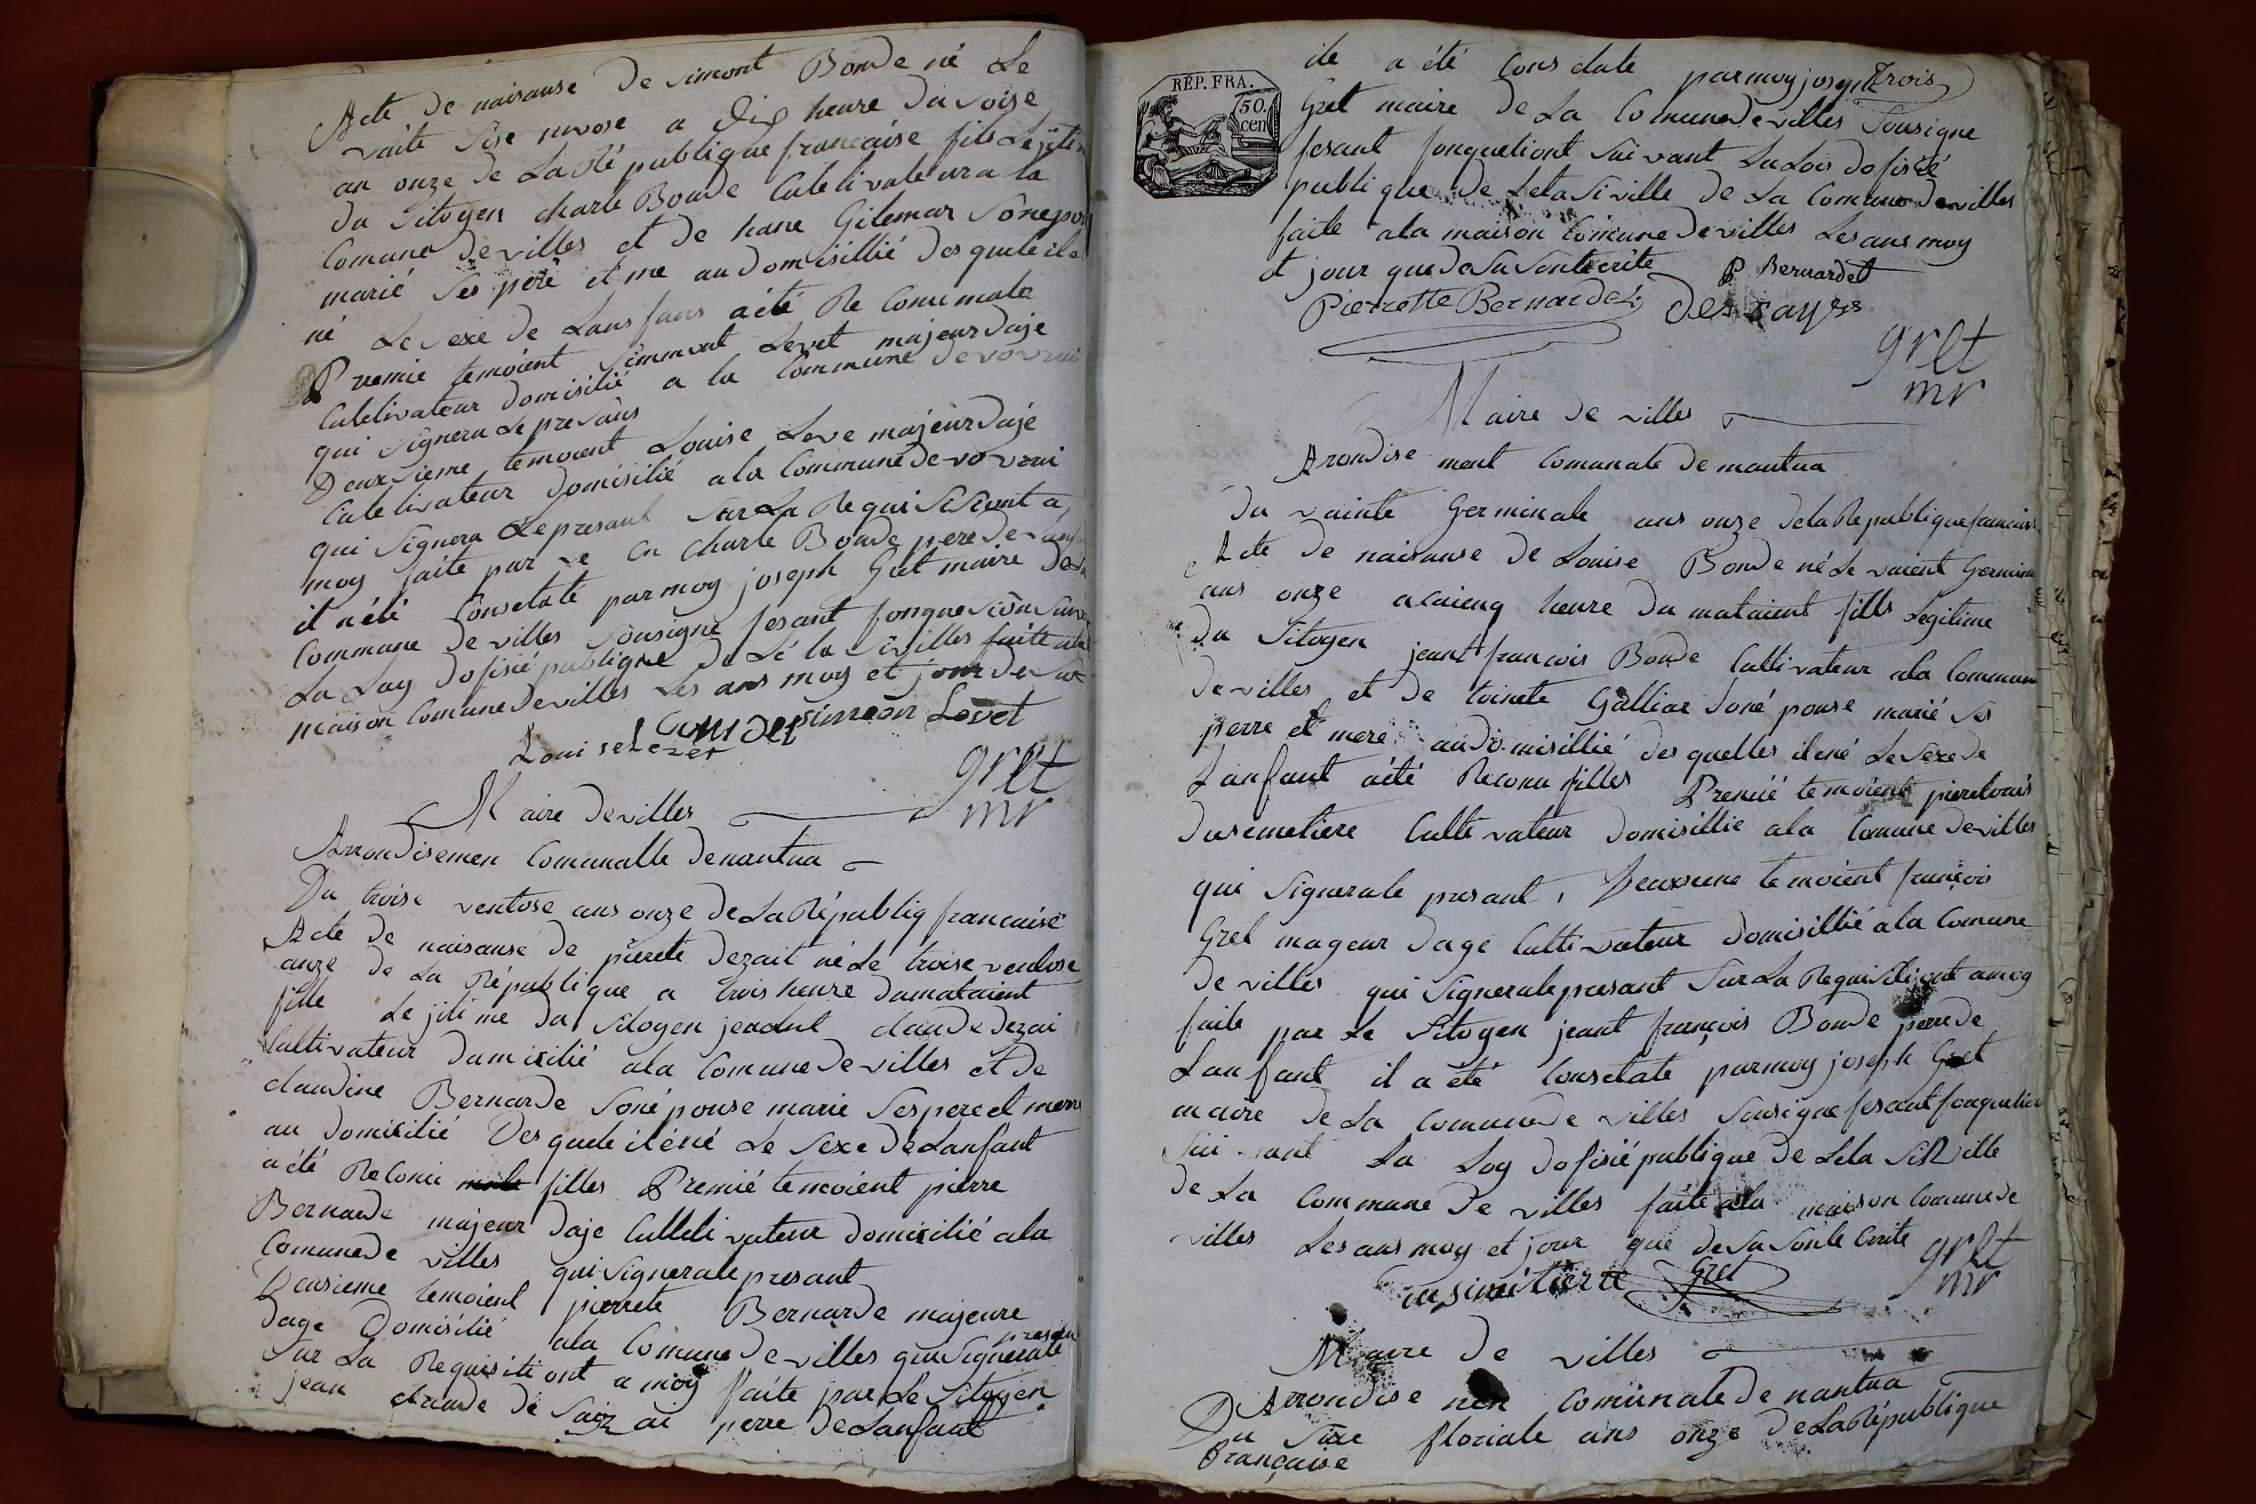 Acte de naisanse de simont Bonde né Le
vaite sise nivose a dix heure du soise
an onze de La Ré publique francaise fils Lejiti
du Sitogen charle Bonde Culelivateur a la
Comune de villes et de hane Gilemar Sônepou
marié Ses pere et me au domisillié des quele il e
né Le sexe de Lans fans a été Re Conu male
Premie temoient Simmont Levet majeur daje
Culetivateur domisilié a la Commune de vovrai
qui Signera Le presans
Deuxsieme temoient Louise Leve majeur daje
Culelivateur domisilié a la Commune de vovrai
qui Signera Le presant Sur La Requisisiont a
moy faite par Le Cn charle Bonde pere de Lanf
il a été Consetate par moy joseph Gret maire de
Commune de villes Sousigne fesant fonquesiôn Suiv
La Loy dofisié publique de Lé ta Sivilles faite ala
maison Comune de villes Les ans moy et jour de Sus
Simeon Levet
Louise Lezet
gret
mr
Maire de villes
Arrondisemen Comunalle de nantua
Du troise ventose ans onze de La Républiq francaise
Acte de naisanse de pierete dezait né Le troise ventose
onze de La République a trois heure du mataient
fille Le jiti me du Sitogen jean claude dezai
Cultivateur dumicilié ala Comune de villes et de
claudine Bernarde Soné pouse marie Ses pere et merre
au domicilié Des quele il é né Le Sexe de Lanfant
a été Reconu male filles Premié temoient pierre
Bernarde majeur daje Culleli vateur domicilié ala
Comune de villes qui Signera le presant
Deusieme temoient pierrete Bernarde majeure
dage Domisilié ala Comune de villes qui Signera le presan
Sur La Requisiti ont a moy faite par Le Sitogen
jean claude de Saiz ai perre de Lanfant
ile a été Cons data par moy joseph
trois
Gret maire de La Comune de villes Sousigne
fesant fonquetiont Sui vant La Lois dofisié
publi que de Leta Siville de La Comune de villes
faite ala maison Comune de villes Les ans moy
et jour que de Su Sonte crite P Bernardet
Pierrette Bernardet Desrayes
gret
mr
Maire de villes
Arondise ment Comunale de nantua
Du vainte Germinale ans onze de la Republique francais
Acte de naisanse de Louise Bonde né Le vaient Germina
ans onze a caienq heure du mataient fills Legitime
du Sitogen jeant francois Bonde Cultivateur ala Commun
de villes et de toinete Galliar Soné pouse marié Ses
perre et mere au do misillié des quelles il e né Le Sexe de
Lanfant a été Reconu filles Premié temoient pierre
dusemetiere Culte vateur domisillie ala Comune de villes
qui Signera le presant, Deuxieme te moient françois
Gret mageur dage Cultivateur domisillié ala Comune
de villes qui Signera le presant Sur La Requisitiont a moy
faite par Le Sitogen jeant françois Bonde perre de
Lanfant il a été Consetate par moy joseph Gret
maire de La Comune de villes Sousigne fesant fonquetion
Sui vant La Loy dofisié publique de Leta Siville
de La Commune de villes faite ala maison Comune de
villes Les ans moy et jour que de Su Sonte Crite
dusimetierre Gret
gret
mr
Maire de villes
Arrondise men Comunale de nantua
Du Sixe floriale ans onze de La République
Française
RÉP. FRA.
50.
cen